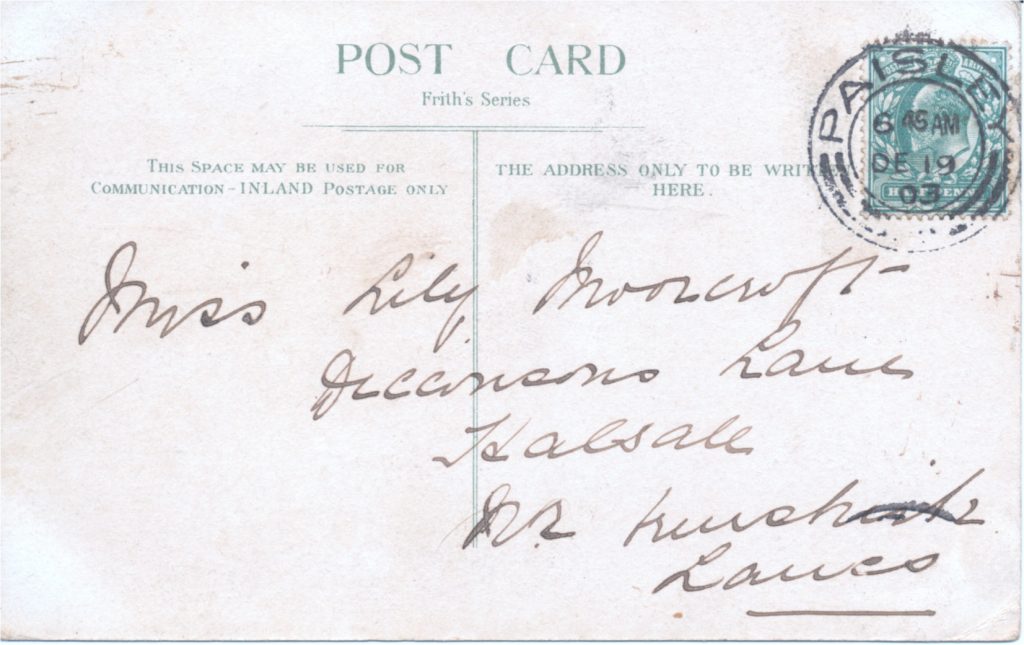 POST CARD
Frith's Series
THIS SPACE MAY BE USED FOR
COMMUNICATION - INLAND POSTAGE ONLY
THE ADDRESS ONLY TO BE WRITTEN
HERE.
PAISLEY
6 45 AM
DE 19
03
Miss Lily Moorcroft
Deccinsons Lane
Halsall
Nr
Lancs